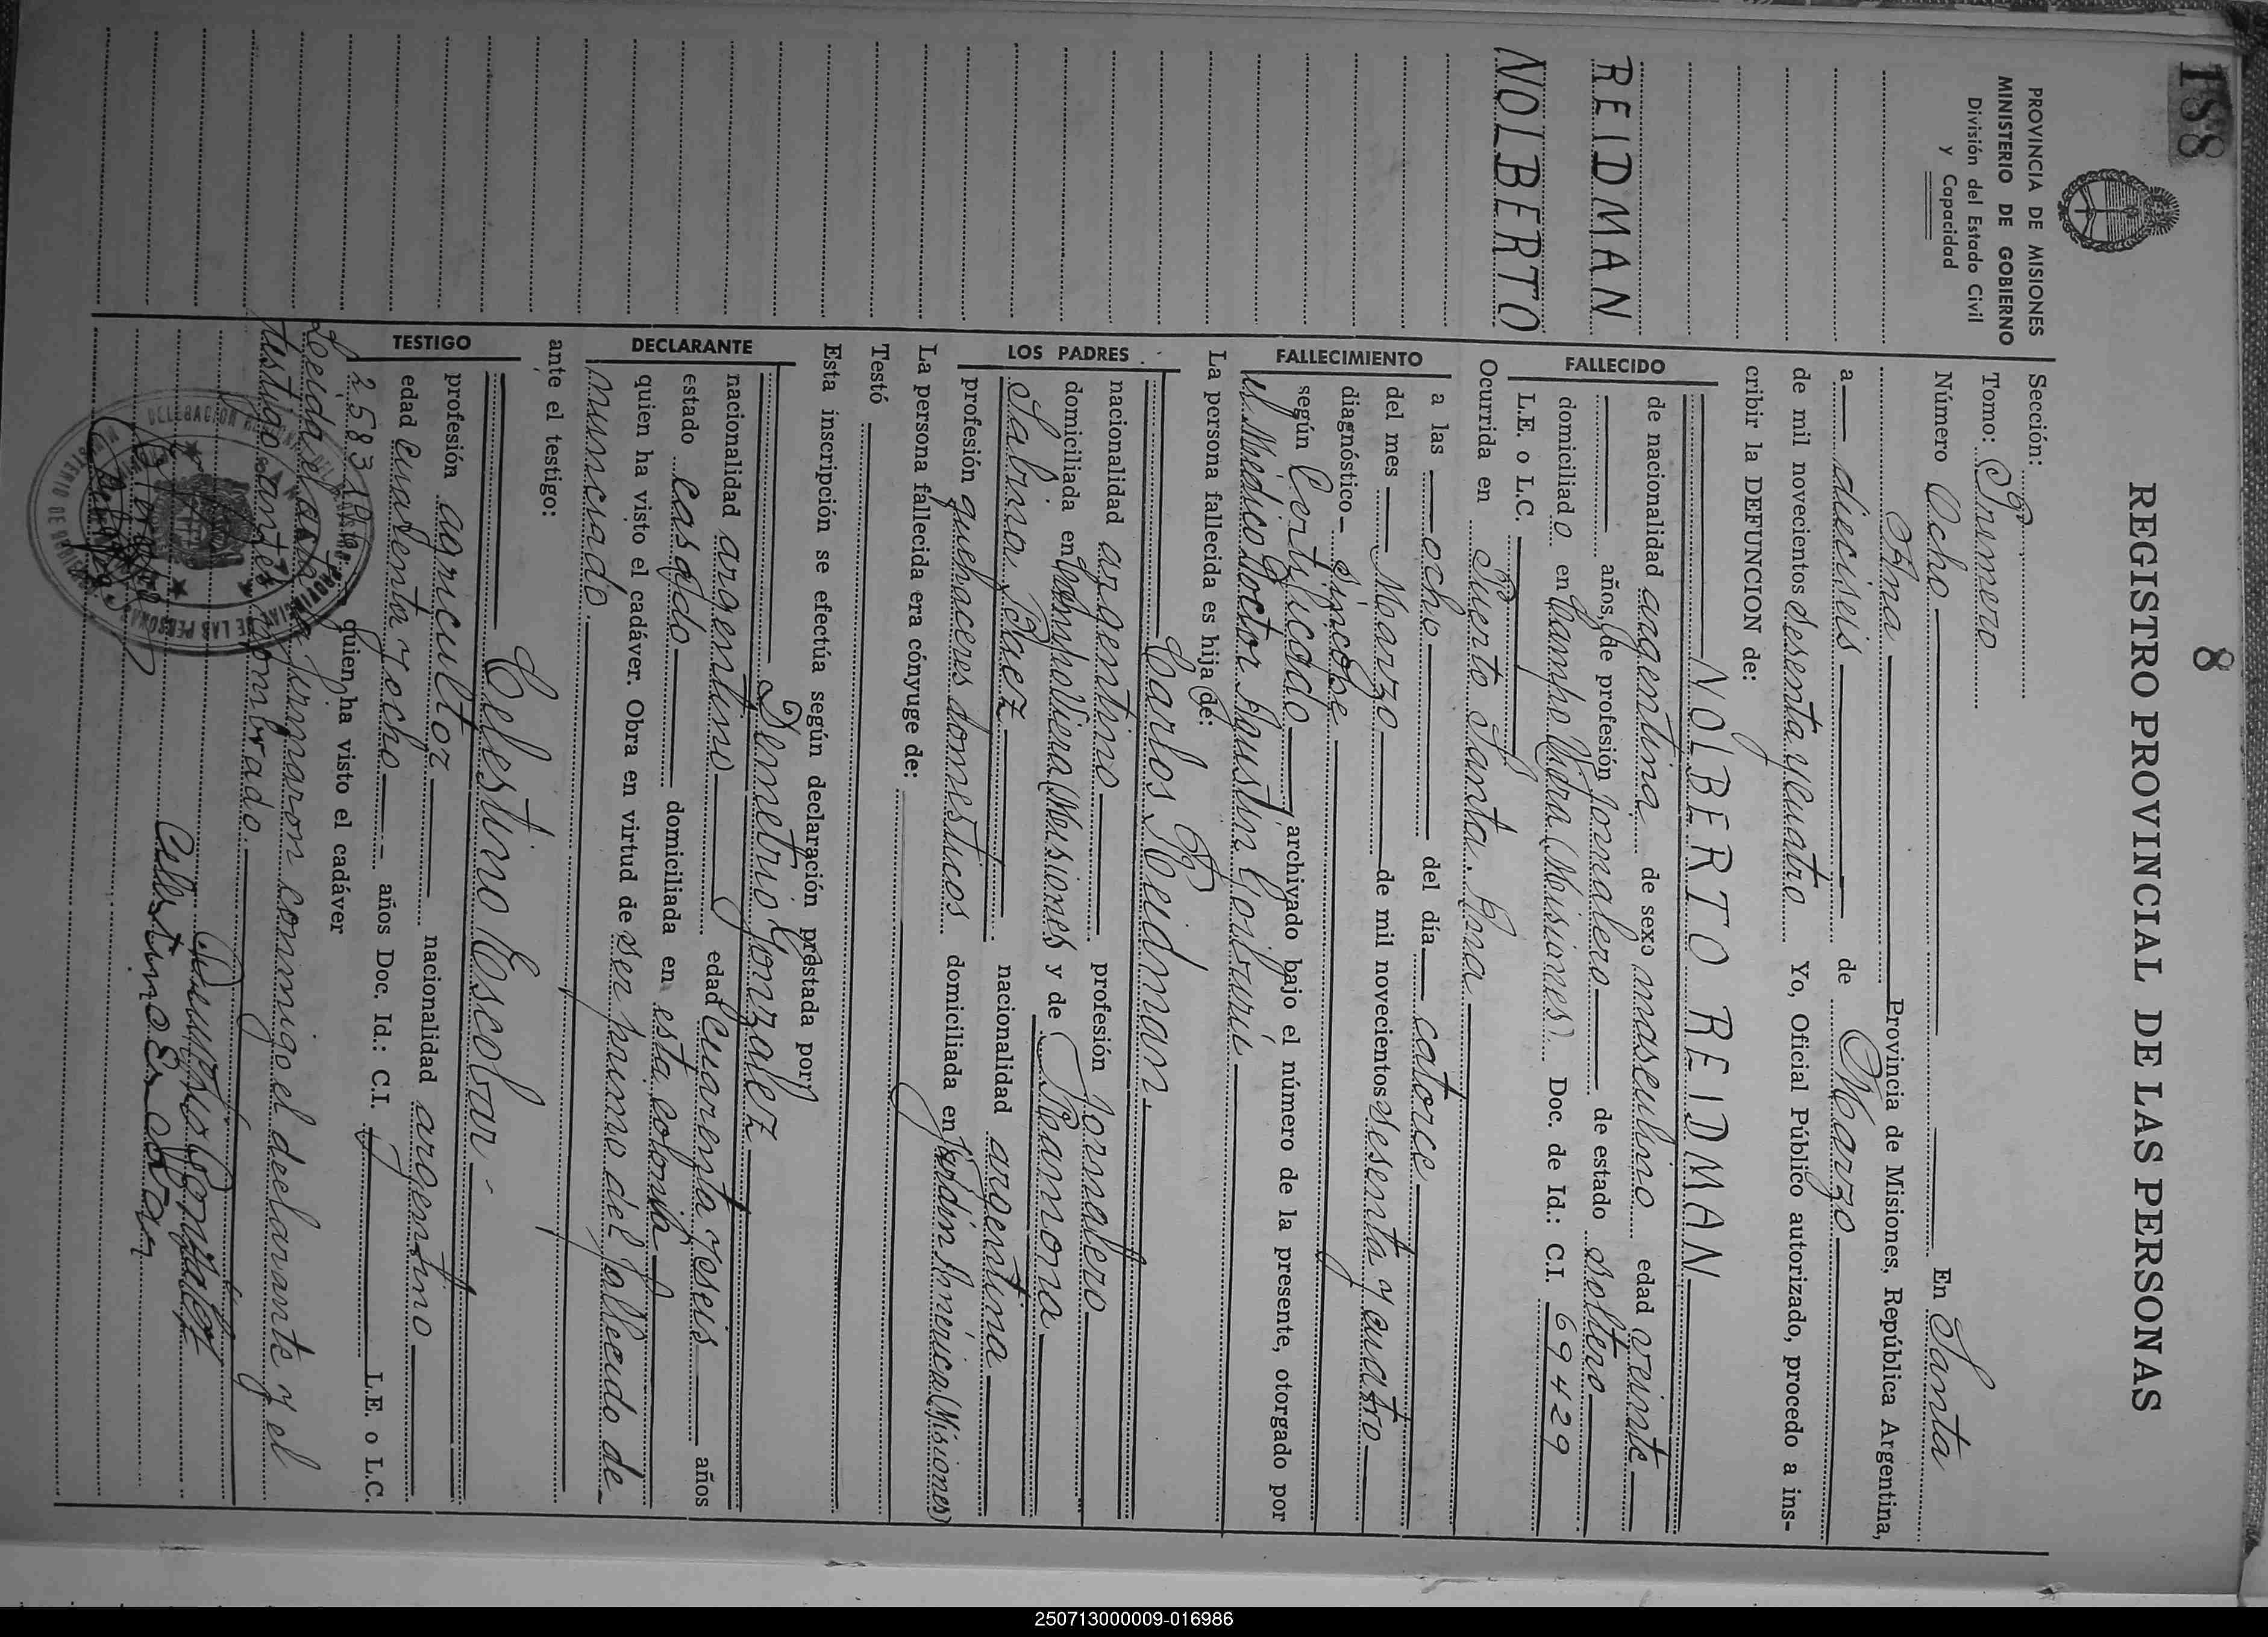 188
8
REGISTRO PROVINCIAL DE LAS PERSONAS
PROVINCIA DE MISIONES
MINISTERIO DE GOBIERNO
División del Estado Civil
y Capacidad
REIDMAN
NOLBERTO
Sección:
Tomo: Primero
Número Ocho En Santa
Ana Provincia de Misiones, República Argentina,
a dieciseis de Marzo
de mil novecientos sesenta y cuatro Yo, Oficial Público autorizado, procedo a ins-
cribir la DEFUNCION de:
FALLECIDO
NOLBERTO REIDMAN
de nacionalidad argentina de sexo masculino edad veinte
años, de profesión Jornalero de estado soltero
domiciliado en Campo Viera (Misiones). Doc. de Id.: C.I. 69429
L.E. o L.C.
FALLECIMIENTO
Ocurrida en Puerto Santa Ana
a las ocho del día catorce
del mes Marzo de mil novecientos sesenta y cuatro
diagnóstico síncope
según Certificado archivado bajo el número de la presente, otorgado por
el Médico Doctor Agustin
La persona fallecida es hija de:
LOS PADRES
Carlos Reidman
nacionalidad argentino profesión Jornalero
domiciliada en Campo Viera (Misiones) y de Ramona
Sabina Paez nacionalidad argentina
profesión quehaceres domesticos domiciliada en Jardín América (Misiones)
La persona fallecida era cónyuge de:
Testó
Esta inscripción se efectúa según declaración prestada por
DECLARANTE
Demetrio Gonzalez
nacionalidad argentino edad cuarenta y seis años
estado casado domiciliada en esta colonia
quien ha visto el cadáver. Obra en virtud de ser primo del fallecido de-
nunciado.
ante el testigo:
TESTIGO
Celestino Escobar
profesión agricultor nacionalidad argentino
edad cuarenta y ocho años Doc. Id.: C.I. L.E. o L.C.
quien ha visto el cadáver
Leida el acta firmaron conmigo el declarante y el
testigo antes nombrado.
Demetrio Gonzalez
Celestino Escobar
250713000009-016986